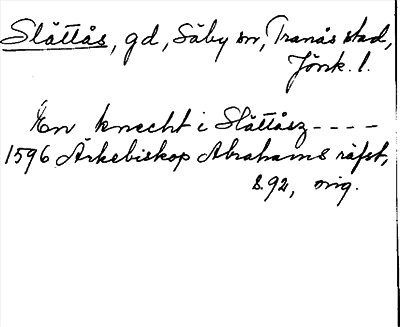 Slättås, gd, Säby sn, Tranås stad,
Jönk. l.
En knecht i Slättåsz----
1596 Ärkebiskop Abrahams räfst,
s. 92, orig.